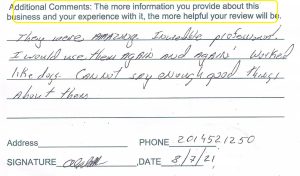 Additional Comments: The more information you provide about this
business and your experience with it, the more helpful your review will be.
They were AMAZING. Incredible professional.
I would use them AGAIN and AGAIN! Worked
like dogs. Can not say enough good things
About them
Address PHONE 2014521250
SIGNATURE ,DATE 8/7/21